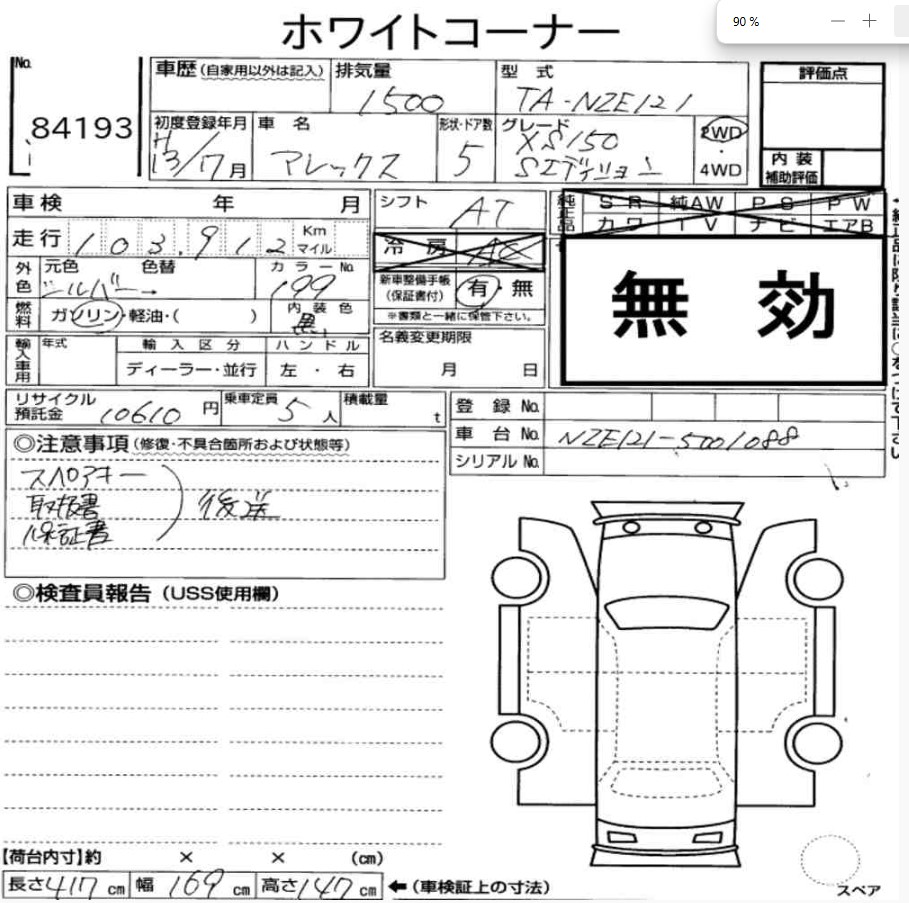 90 %
ホワイトコーナー
No.
84193
車歴 (自家用以外は記入)
排気量
1500
型 式
TA-NZE121
評価点
初度登録年月
月
車 名
アレックス
形状・ドア数
5
グレード
XS150
Sエディション
2WD
・
4WD
内 装
補助評価
車検 年 月
シフト
AT
純正品
S R 純AW P S P W
カワ T V ナビ エアB
走行 103,912 Km
マイル
冷 房 AC
外色
元色 色替
シルバー →
カラーNo.
199
新車整備手帳
(保証書付)
有・無
※書類と一緒に保管下さい。
無 効
燃料
ガソリン・軽油・( )
内 装 色
黒
輸入車用
年式
輸 入 区 分
ハ ン ド ル
ディーラー・並行
左 ・ 右
名義変更期限
月 日
リサイクル
預託金
10610 円
乗車定員
5 人
積載量
t
登 録 No.
車 台 No. NZE121-5001088
シリアル No.
◎注意事項 (修復・不具合箇所および状態等)
スペアキー
取扱書
保証書
後送
◎検査員報告 (USS使用欄)
【荷台内寸】約 × × (cm)
長さ 417 cm 幅 169 cm 高さ 147 cm ←(車検証上の寸法)
スペア